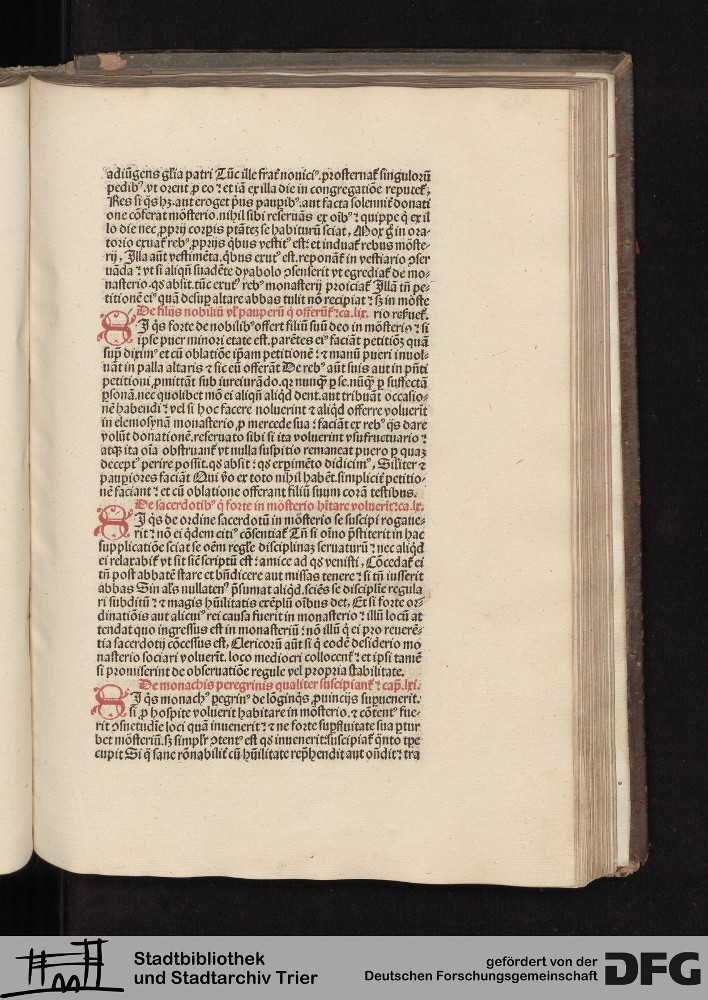 adiũgens glĩa patri Tũc ille frat̃ nouici⁹.prosternat̃ singulorũ
pedib⁹.vt orent ꝓ eo ⁊ et iã ex illa die in congregatiõe reputet̃,
Res si q̃s hꝫ.aut eroget p̃us paupib⁹.aut facta solennit̃ donati
one cõferat mõsterio.nihil sibi reseruãs ex oĩb⁹ ⁊ quippe q̃ ex il
lo die nec ꝓprij corpis ptãteꝫ se habiturũ sciat, Mox g̃ in ora-
torio exuat̃ reb⁹ ꝓprijs q̃bus vestit⁹ est: et induat̃ rebus mõste-
rij, Illa aũt vestimẽta.q̃bus exut⁹ est.reponãt̃ in vestiario ꝯser
uãda ⁊ vt si aliqñ suadẽte dyabolo ꝯsenserit vt egrediat̃ de mo-
nasterio.qđ absit.tũc exut⁹ reb⁹ monasterij proiciat̃ Illã tñ pe-
titionẽ ei⁹ quã desup altare abbas tulit nõ recipiat ⁊ sꝫ in mõste
De filijs nobiliũ vl̃ pauperũ q̃ offerũt̃ ⁊ca.lix. rio refuet̃.
SI q̃s forte de nobilib⁹ offert filiũ suũ deo in mõsterio ⁊ si
ipse puer minori etate est.parẽtes ei⁹ faciãt petitiõꝫ quã
sup̃ dixim⁹ et cũ oblatiõe ip̃am petitionẽ ⁊ ⁊ manũ pueri inuol-
uãt in palla altaris ⁊ sic eũ offerãt De reb⁹ aũt suis aut in p̃ñti
petitioni ꝓmittãt sub iureiurãdo.qꝛ nunq̃ꝫ p se.nũq̃ꝫ p suffectã
ꝑsonã.nec quolibet mõ ei aliqñ aliq̃d dent.aut tribuãt occasio-
nẽ habendi ⁊ vel si hoc facere noluerint ⁊ aliq̃d offerre voluerĩt
in elemosynã monasterio ꝓ mercede sua ⁊ faciãt ex reb⁹ q̃s dare
volũt donationẽ.reseruato sibi si ita voluerint vsufructuario ⁊
atqꝫ ita oĩa obstruant̃ vt nulla suspitio remaneat puero p quaꝫ
decept⁹ perire possit.qđ absit ⁊ qđ exꝑimẽto didicim⁹, Sil̃iter ⁊
paupiores faciãt Qui ṽo ex toto nihil habẽt.simplicit̃ petitio-
nẽ faciant ⁊ et cũ oblatione offerant filiũ suum corã testibus.
De sacerdotib⁹ q̃ forte in mõsterio hĩtare voluerĩt ⁊ca.lx.
SI q̃s de ordine sacerdotũ in mõsterio se suscipi rogaue-
rit ⁊ nõ ei q̃dem citi⁹ cõsentiat̃ Tñ si oĩno p̃stiterit in hac
supplicatiõe sciat se oẽm regl̃e disciplinaꝫ seruaturũ ⁊ nec aliq̃d
ei relaxabit̃ vt sit siẽ scriptũ est ⁊ amice ad qđ venisti, Cõcedat̃ ei
tñ post abbatẽ stare et bñdicere aut missas tenere ⁊ si tñ iusserit
abbas Sin al̃s nullaten⁹ p̃sumat aliq̃d.sciẽs se disciplĩe regula
ri subditũ ⁊ ⁊ magis hũilitatis exẽplũ oĩbus det, Et si forte or-
dinatiõis aut alicui⁹ rei causa fuerit in monasterio ⁊ illũ locũ at
tendat quo ingressus est in monasteriũ ⁊ nõ illũ q̃ ei pro reuerẽ-
tia sacerdotij cõcessus est, Clericorũ aũt si q̃ eodẽ desiderio mo
nasterio sociari voluerĩt.loco mediocri collocent̃ ⁊ et ipsi tamẽ
si promiserint de obseruatiõe regule vel propria stabilitate.
De monachis peregrinis qualiter suscipiant̃ ⁊ cap̃.lxi.
SI q̃s monach⁹ pegrin⁹ de lõginq̃s ꝓuincijs supuenerit.
si ꝓ hospite voluerit habitare in mõsterio.⁊ cõtent⁹ fue-
rit ꝯsuetudĩe loci quã inuenerit ⁊ ⁊ ne forte supfluitate sua ptur
bet mõsteriũ.sꝫ simpl̃r ꝯtent⁹ est qđ inuenerit ⁊ suscipiat̃ q̃nto tꝑe
cupit Si q̃ sane rõnabilit̃ cũ hũilitate rep̃hendit aut oñdit ⁊ tra
Stadtbibliothek
und Stadtarchiv Trier
gefördert von der
Deutschen Forschungsgemeinschaft
DFG